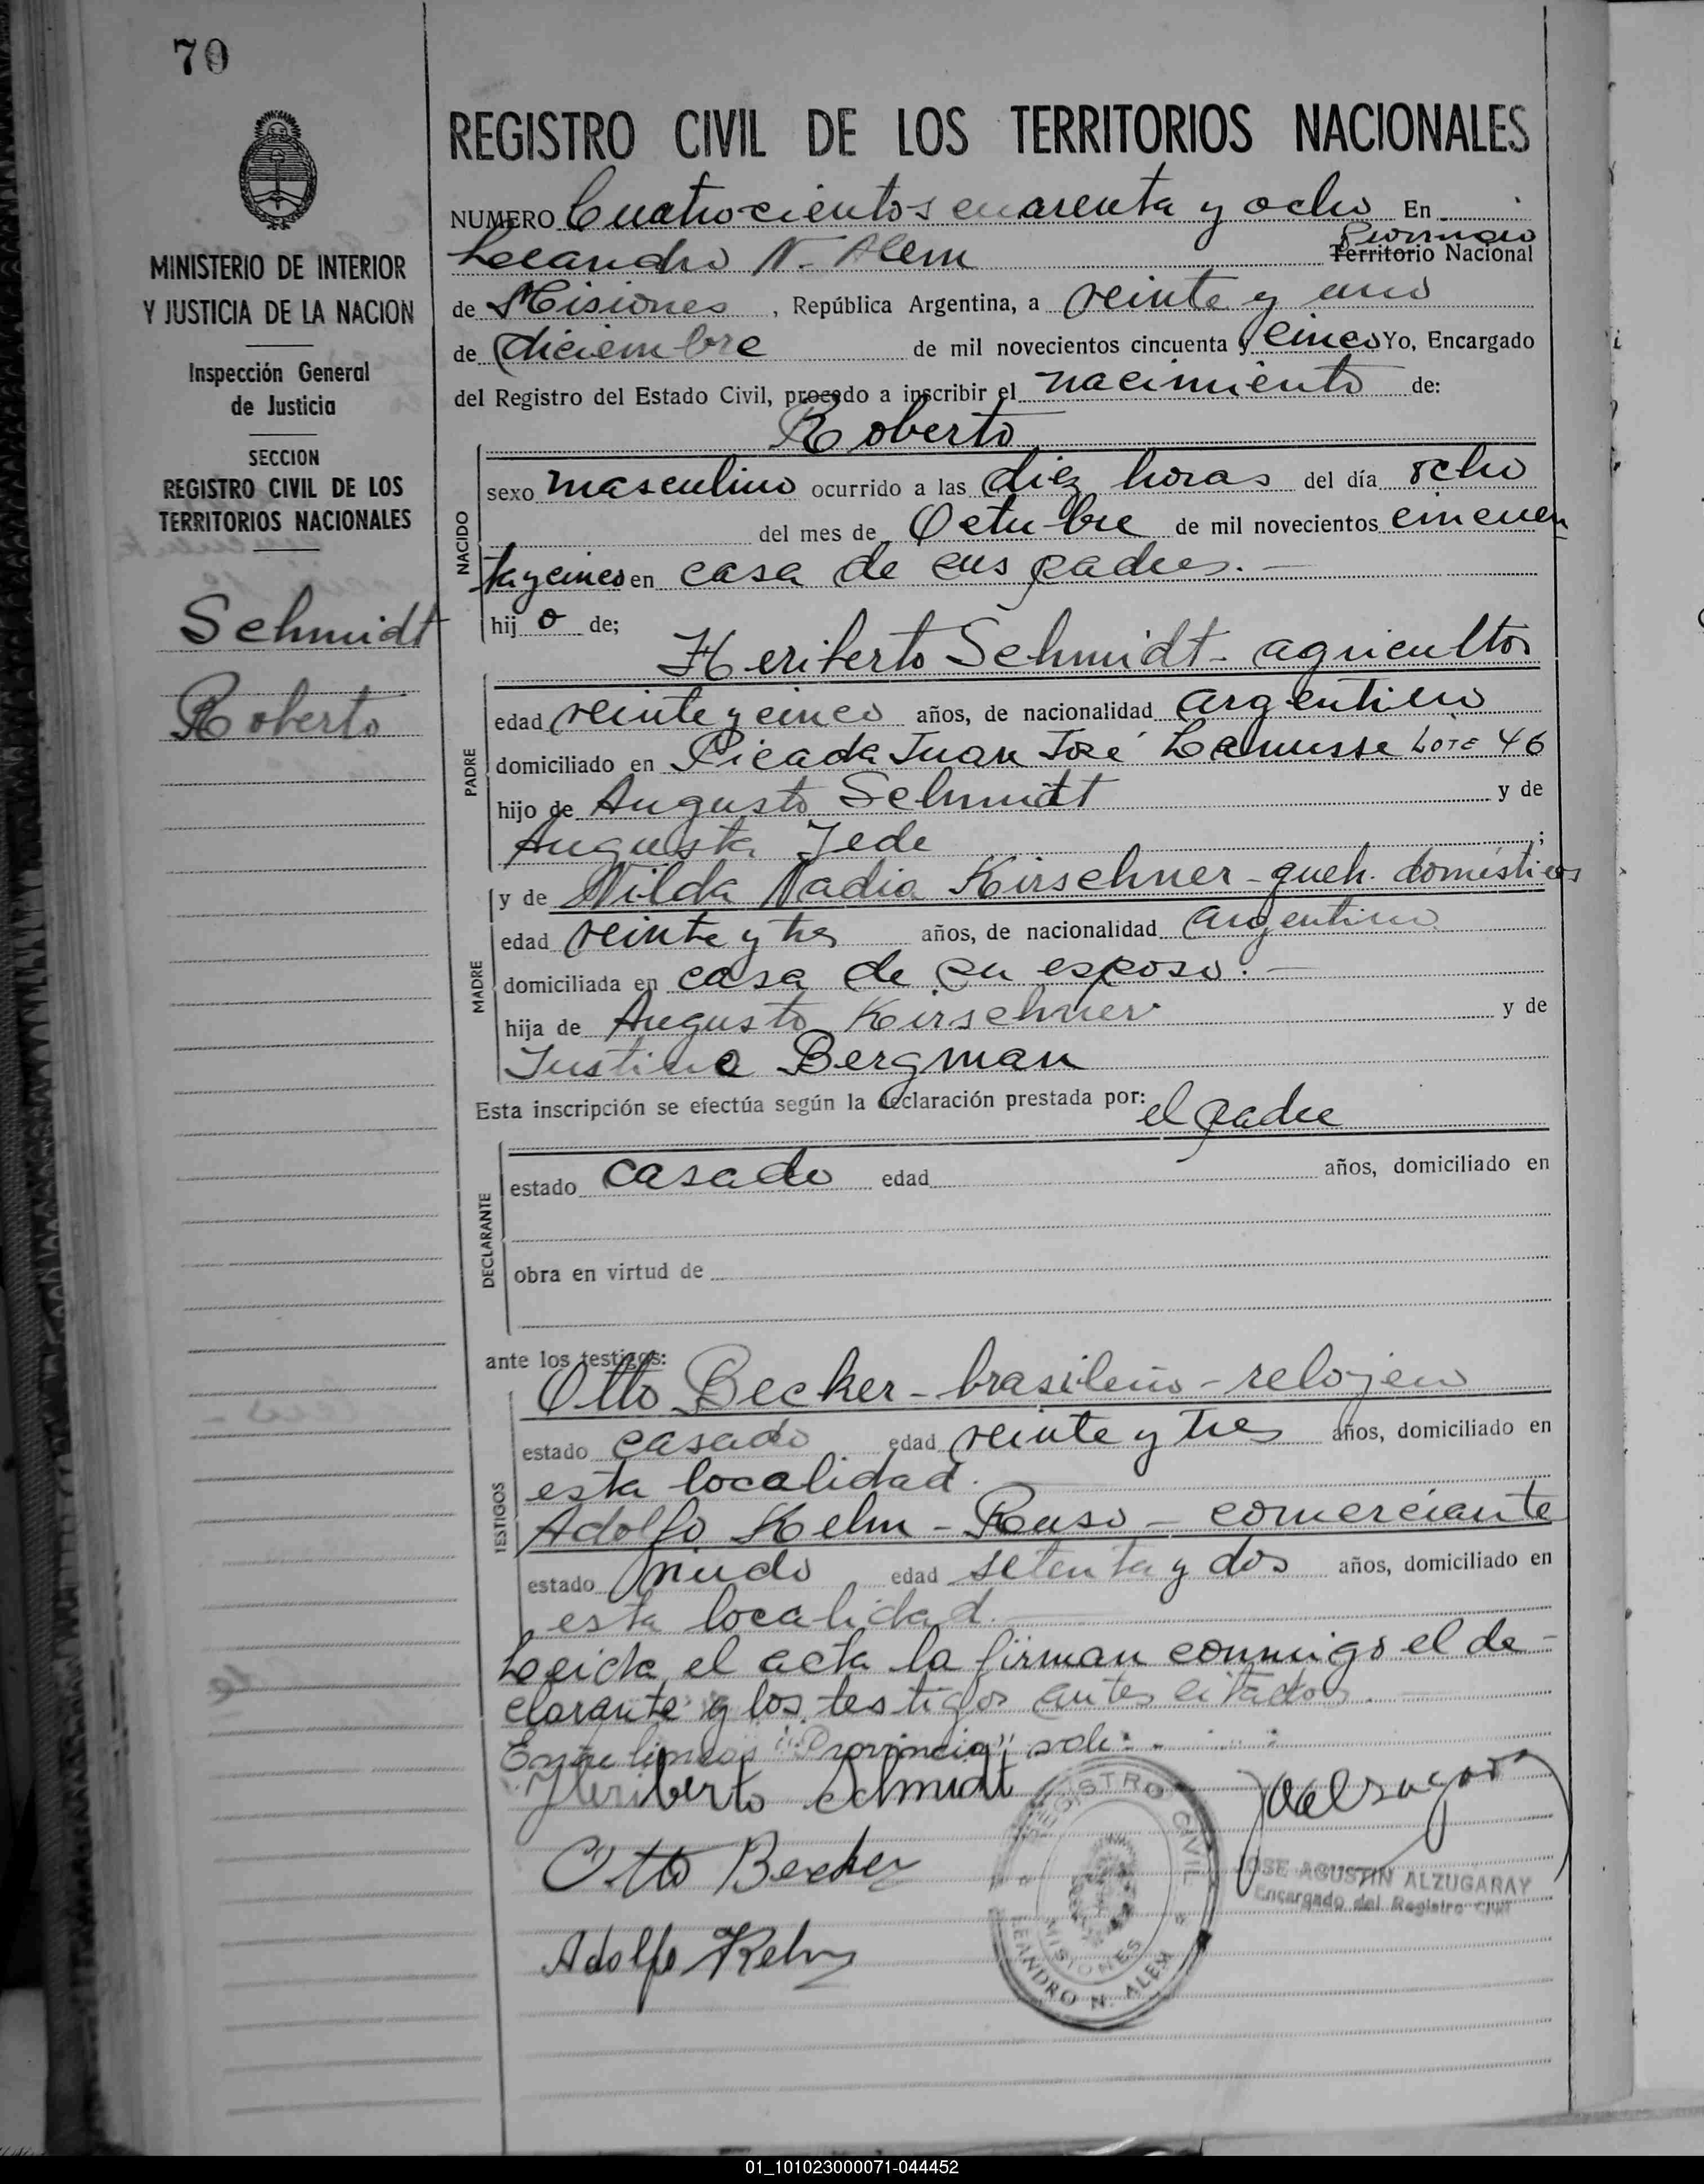 70
MINISTERIO DE INTERIOR
Y JUSTICIA DE LA NACION
Inspección General
de Justicia
SECCION
REGISTRO CIVIL DE LOS
TERRITORIOS NACIONALES
Schmidt
Roberto
REGISTRO CIVIL DE LOS TERRITORIOS NACIONALES
NUMERO Cuatrocientos cuarenta y ocho En
Provincia
Leandro N. Alem Territorio Nacional
de Misiones, República Argentina, a veinte y uno
de diciembre de mil novecientos cincuenta y cinco Yo, Encargado
del Registro del Estado Civil, procedo a inscribir el nacimiento de:
Roberto
NACIDO
sexo masculino ocurrido a las diez horas del día ocho
del mes de Octubre de mil novecientos cincuen
ta y cinco en casa de sus padres.-
hijo de;
Heriberto Schmidt - agricultor
PADRE
edad veinte y cinco años, de nacionalidad argentino
domiciliado en Picada Juan José Lanusse LOTE 46
hijo de Augusto Schmidt y de
Augusta Jede;
y de Nilda Nadia Kirschner - queh. domésticos
MADRE
edad veinte y tres años, de nacionalidad argentina
domiciliada en casa de su esposo.-
hija de Augusto Kirschner y de
Justina Bergman
Esta inscripción se efectúa según la declaración prestada por: el padre
DECLARANTE
estado casado edad años, domiciliado en
obra en virtud de
ante los testigos:
Otto Becker - brasileño - relojero
TESTIGOS
estado casado edad veinte y tres años, domiciliado en
esta localidad.
Adolfo Kelm - Ruso - comerciante
estado viudo edad setenta y dos años, domiciliado en
esta localidad.
Leida el acta la firman conmigo el de-
clarante y los testigos antes citados.
Entre lineas "Provincia" vale.
Heriberto Schmidt
Otto Becker
Adolfo Kelm
REGISTRO CIVIL
MISIONES
LEANDRO N. ALEM
JOSE AGUSTIN ALZUGARAY
Encargado del Registro Civil
01_101023000071-044452